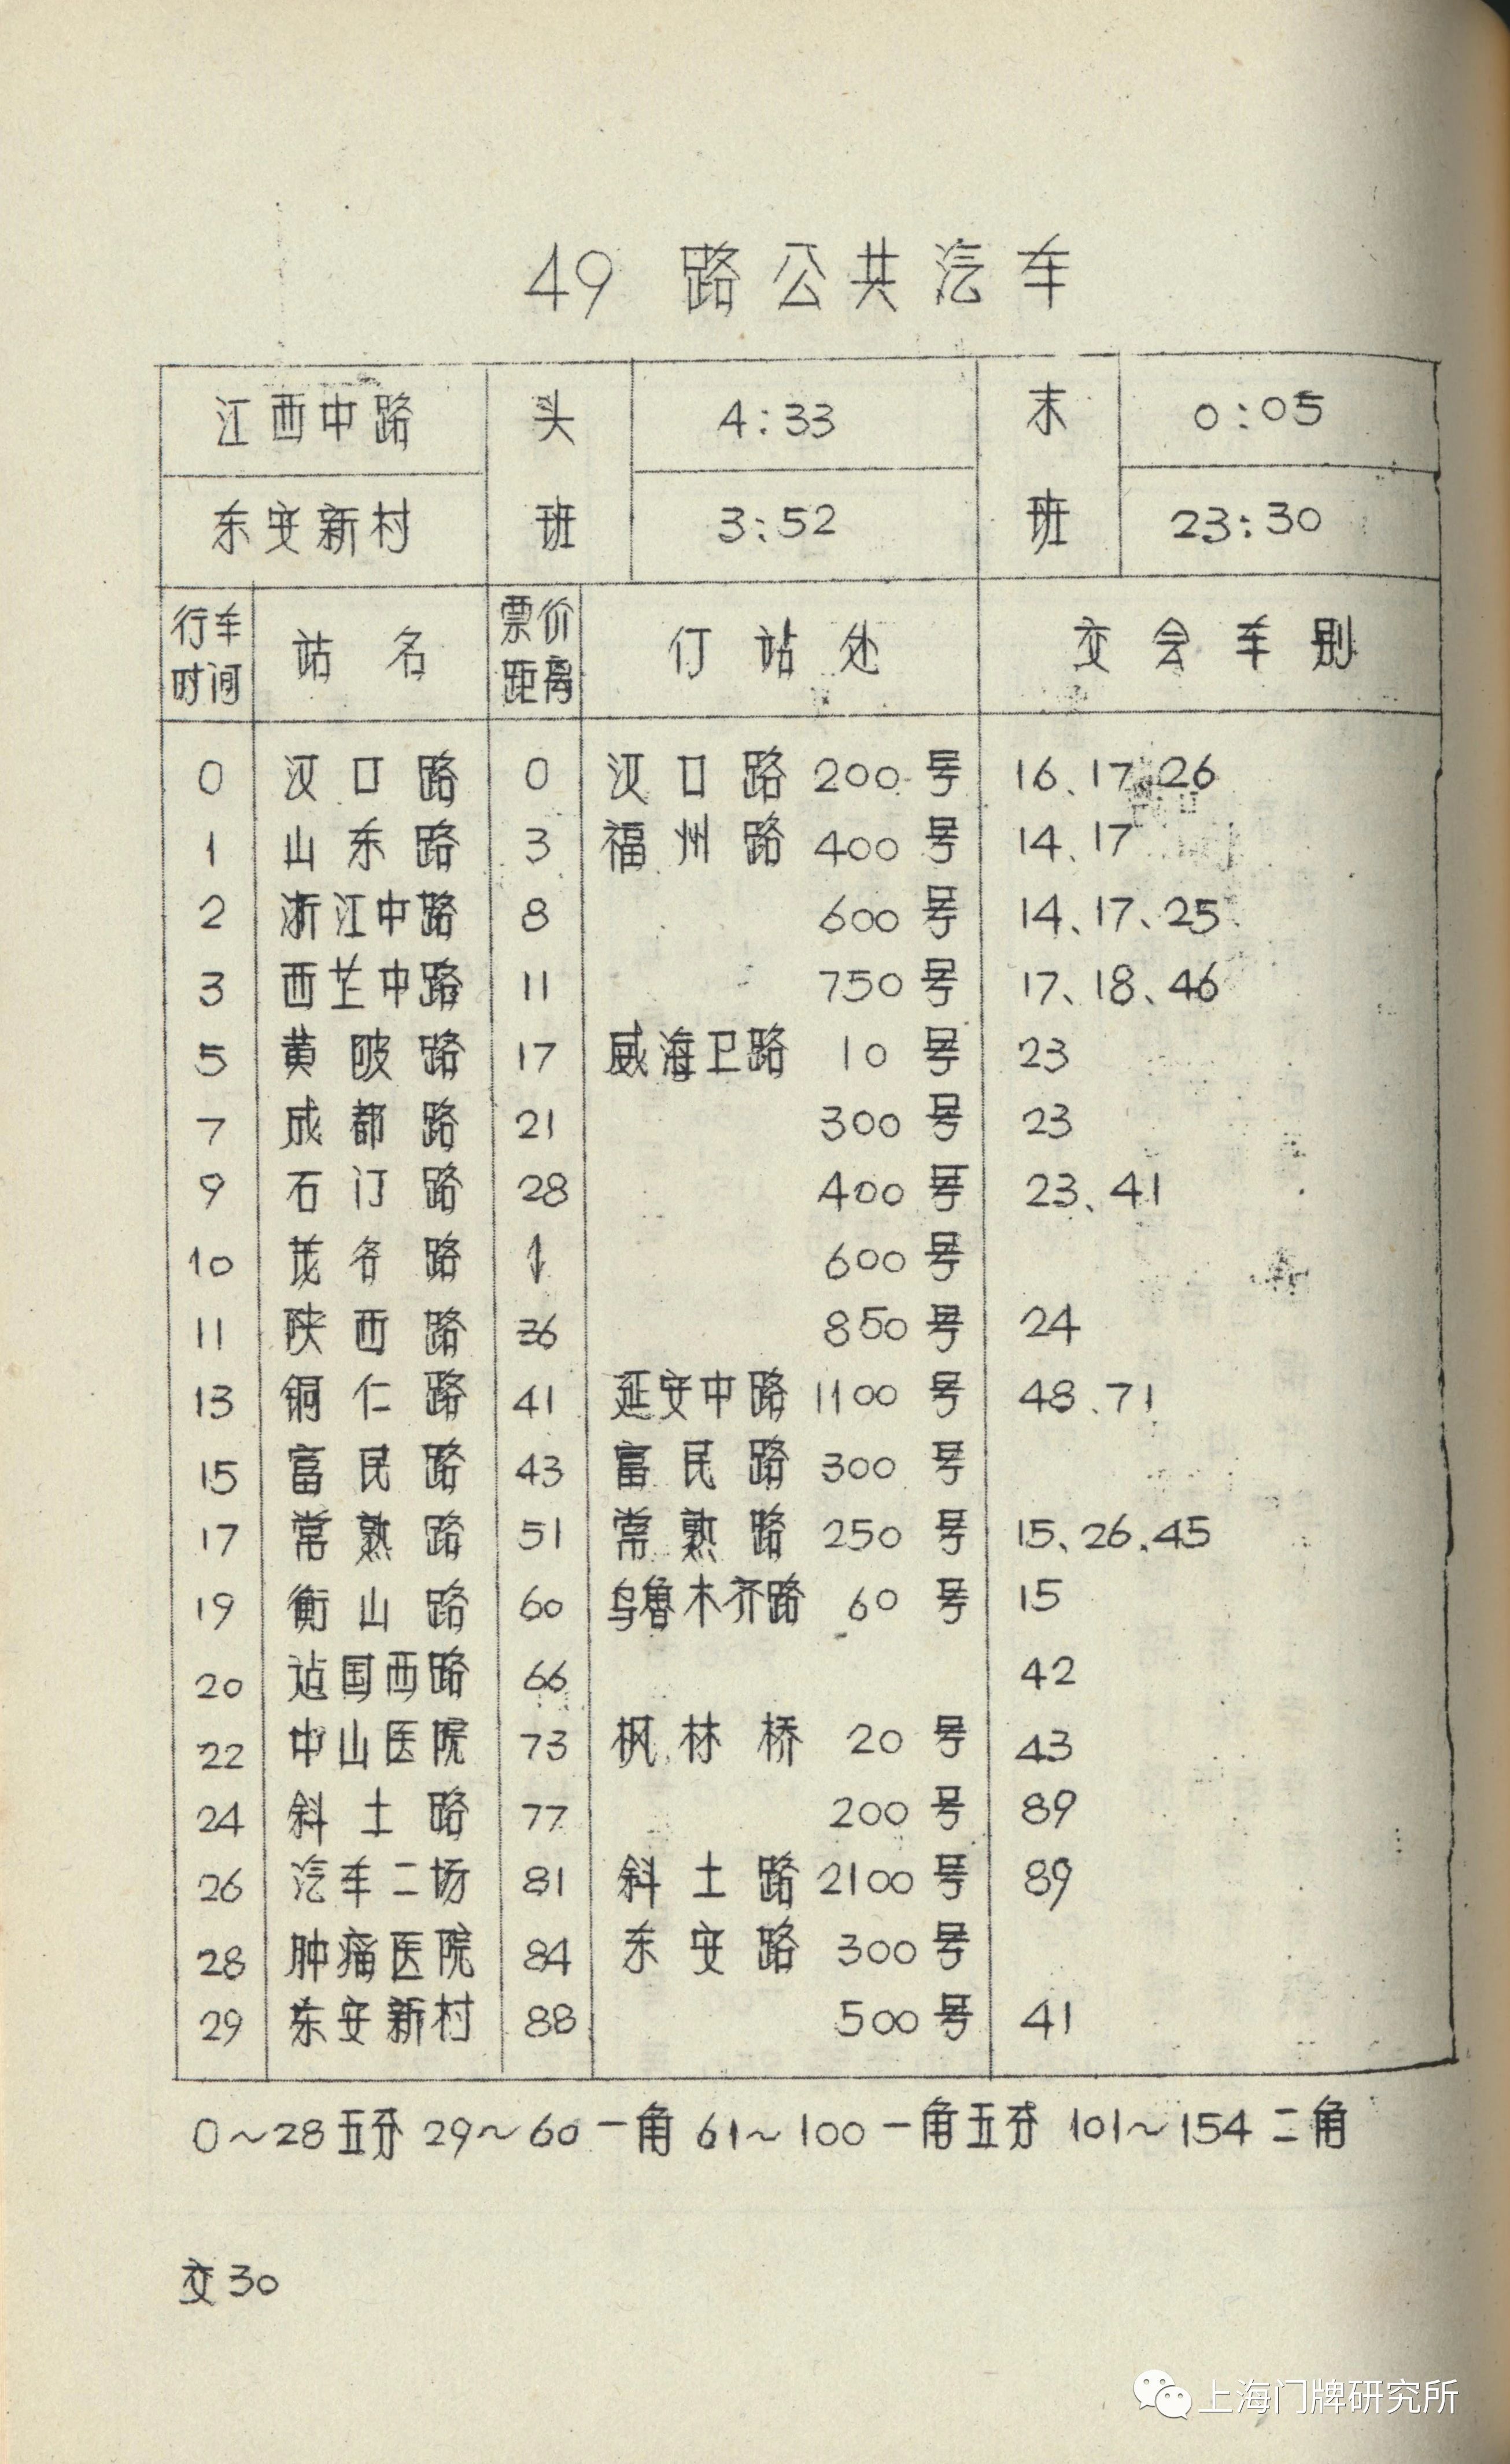 49 路公共汽车
江西中路 头 4:33 末 0:05
东安新村 班 3:52 班 23:30
行车时间 站名 票价距离 仃站处 交会车别
0 汉口路 0 汉口路 200 号 16、17、26
1 山东路 3 福州路 400 号 14、17
2 浙江中路 8 600 号 14、17、25
3 西芷中路 11 750 号 17、18、46
5 黄陂路 17 威海卫路 10 号 23
7 成都路 21 300 号 23
9 石门路 28 400 号 23、41
10 茂名路 600 号
11 陕西路 36 850 号 24
13 铜仁路 41 延安中路 1100 号 48、71
15 富民路 43 富民路 300 号
17 常熟路 51 常熟路 250 号 15、26、45
19 衡山路 60 乌鲁木齐路 60 号 15
20 国西路 66 42
22 中山医院 73 枫林桥 20 号 43
24 斜土路 77 200 号 89
26 汽车二场 81 斜土路 2100 号 89
28 肿瘤医院 84 东安路 300 号
29 东安新村 88 500 号 41
0～28 五分 29～60 一角 61～100 一角五分 101～154 二角
交30
上海门牌研究所